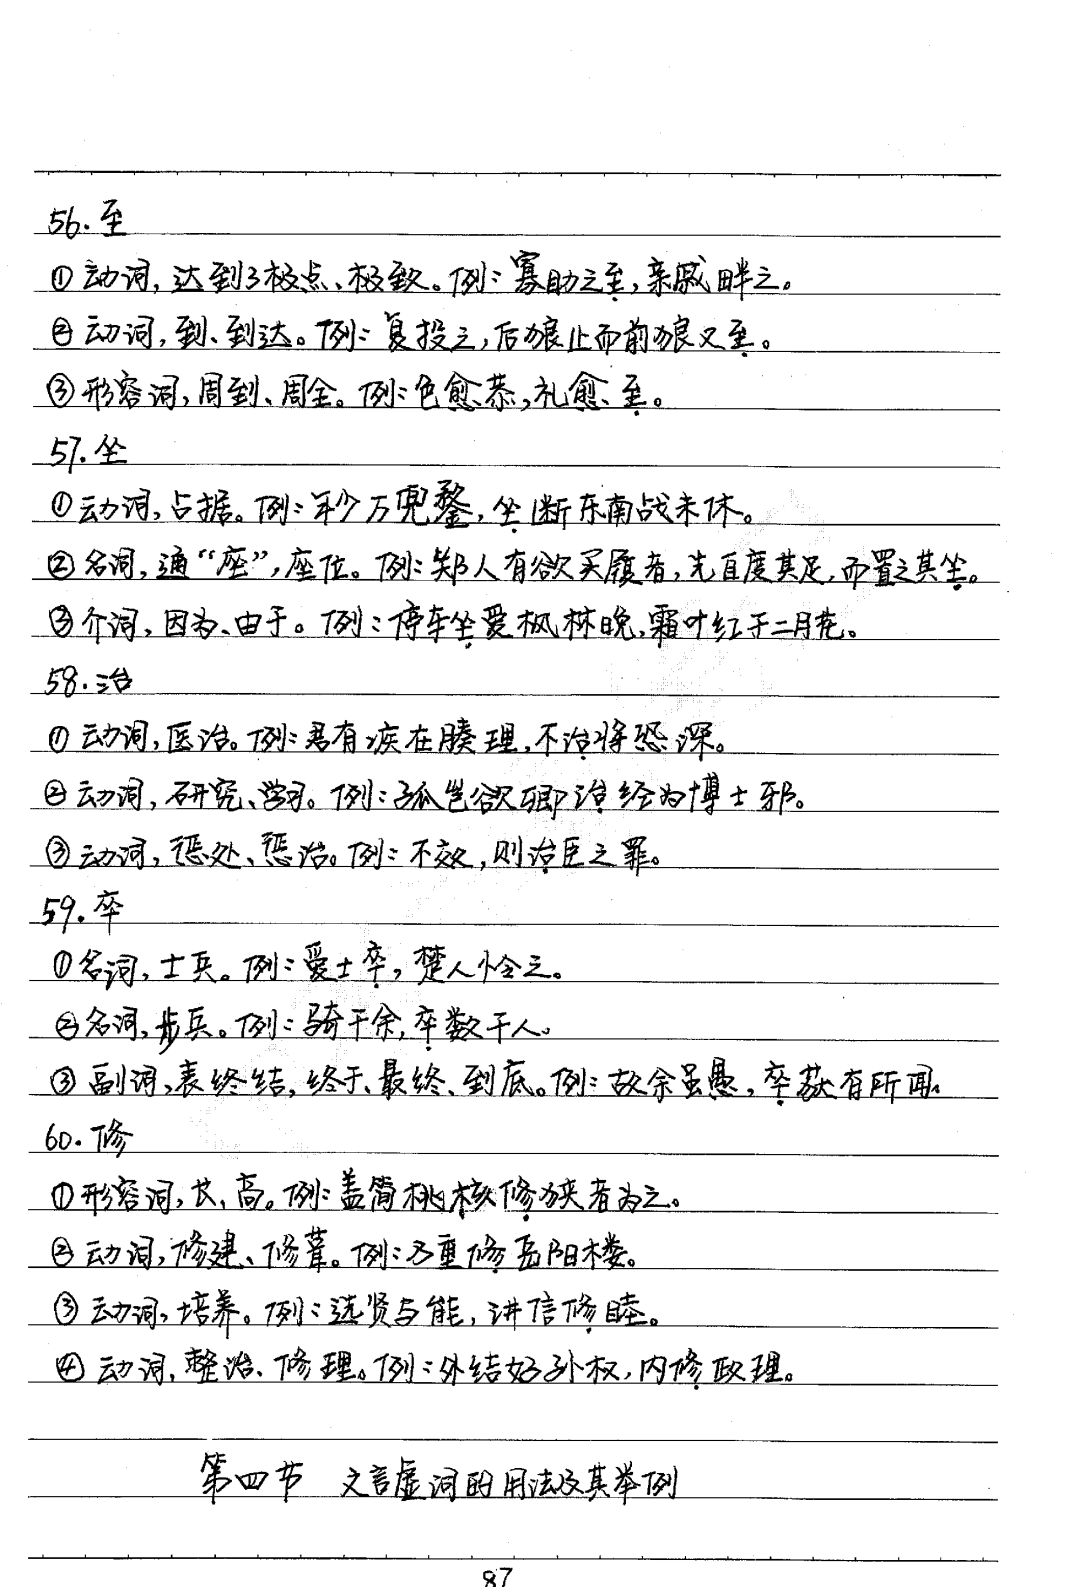 56.至
①动词,达到了极点、极致。例:寡助之至,亲戚畔之。
②动词,到、到达。例:复投之,后狼止而前狼又至。
③形容词,周到、周全。例:色愈恭,礼愈至。
57.坐
①动词,占据。例:年少万兜鍪,坐断东南战未休。
②名词,通“座”,座位。例:郑人有欲买履者,先自度其足,而置之其坐。
③介词,因为、由于。例:停车坐爱枫林晚,霜叶红于二月花。
58.治
①动词,医治。例:君有疾在腠理,不治将恐深。
②动词,研究、学习。例:孤岂欲卿治经为博士邪。
③动词,惩处、惩治。例:不效,则治臣之罪。
59.卒
①名词,士兵。例:爱士卒,楚人怜之。
②名词,步兵。例:骑千余,卒数千人。
③副词,表终结,终于、最终、到底。例:故余虽愚,卒获有所闻。
60.修
①形容词,长、高。例:盖简桃核修狭者为之。
②动词,修建、修葺。例:乃重修岳阳楼。
③动词,培养。例:选贤与能,讲信修睦。
④动词,整治、修理。例:外结好孙权,内修政理。
第四节 文言虚词的用法及其举例
87